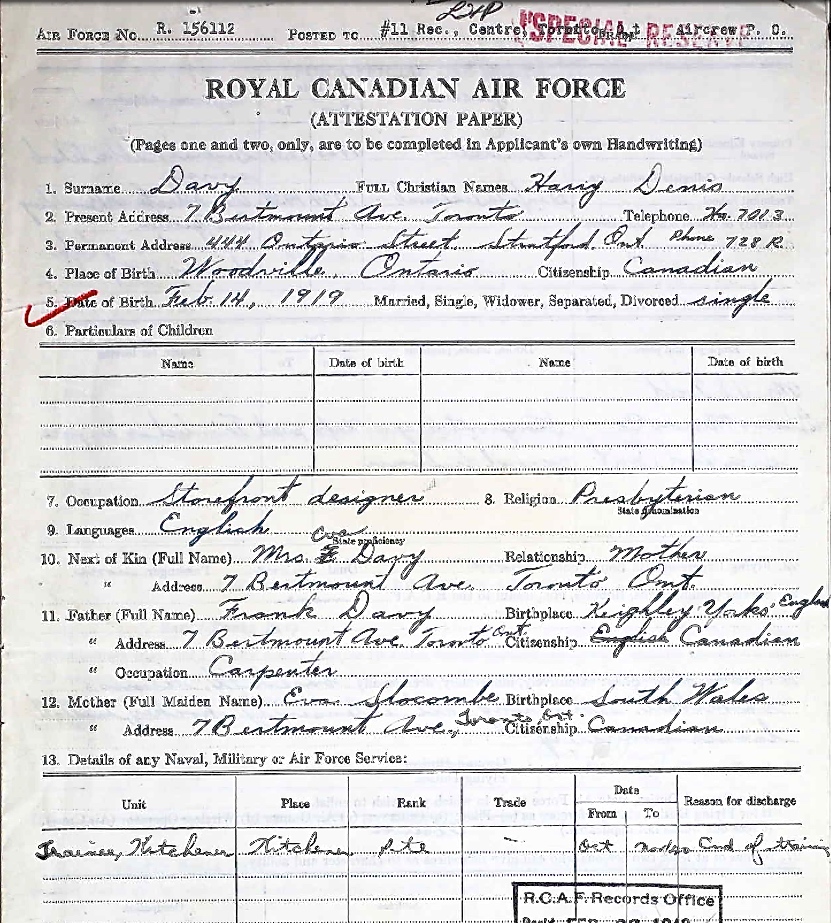 AIR FORCE No. R. 156112 POSTED TO #11 Rec., Centre, Toronto, Ont Aircrew P. O.
SPECIAL RESERVE
ROYAL CANADIAN AIR FORCE
(ATTESTATION PAPER)
(Pages one and two, only, are to be completed in Applicant's own Handwriting)
1. Surname Davy FULL Christian Names Harry Denis
2. Present Address 7 Bertmount Ave. Toronto Telephone Ho. 7013
3. Permanent Address 444 Ontario Street, Stratford Ont Phone 728 R
4. Place of Birth Woodville, Ontario Citizenship Canadian
5. Date of Birth Feb. 14, 1919 Married, Single, Widower, Separated, Divorced single
6. Particulars of Children
Name Date of birth Name Date of birth
7. Occupation Storefront designer 8. Religion Presbyterian
State denomination
9. Languages English
State proficiency
10. Next of Kin (Full Name) Mrs. Eva Davy Relationship Mother
" Address 7 Bertmount Ave. Toronto Ont.
11. Father (Full Name) Frank Davy Birthplace Keighley Yorks. England
" Address 7 Bertmount Ave. Toronto Ont. Citizenship English Canadian
" Occupation Carpenter
12. Mother (Full Maiden Name) Eva Slocombe Birthplace South Wales
" Address 7 Bertmount Ave., Toronto, Ont. Citizenship Canadian
13. Details of any Naval, Military or Air Force Service:
Unit Place Rank Trade Date Reason for discharge
From To
Trainee, Kitchener Kitchener Pte - Oct End of training
R.C.A.F. Records Office